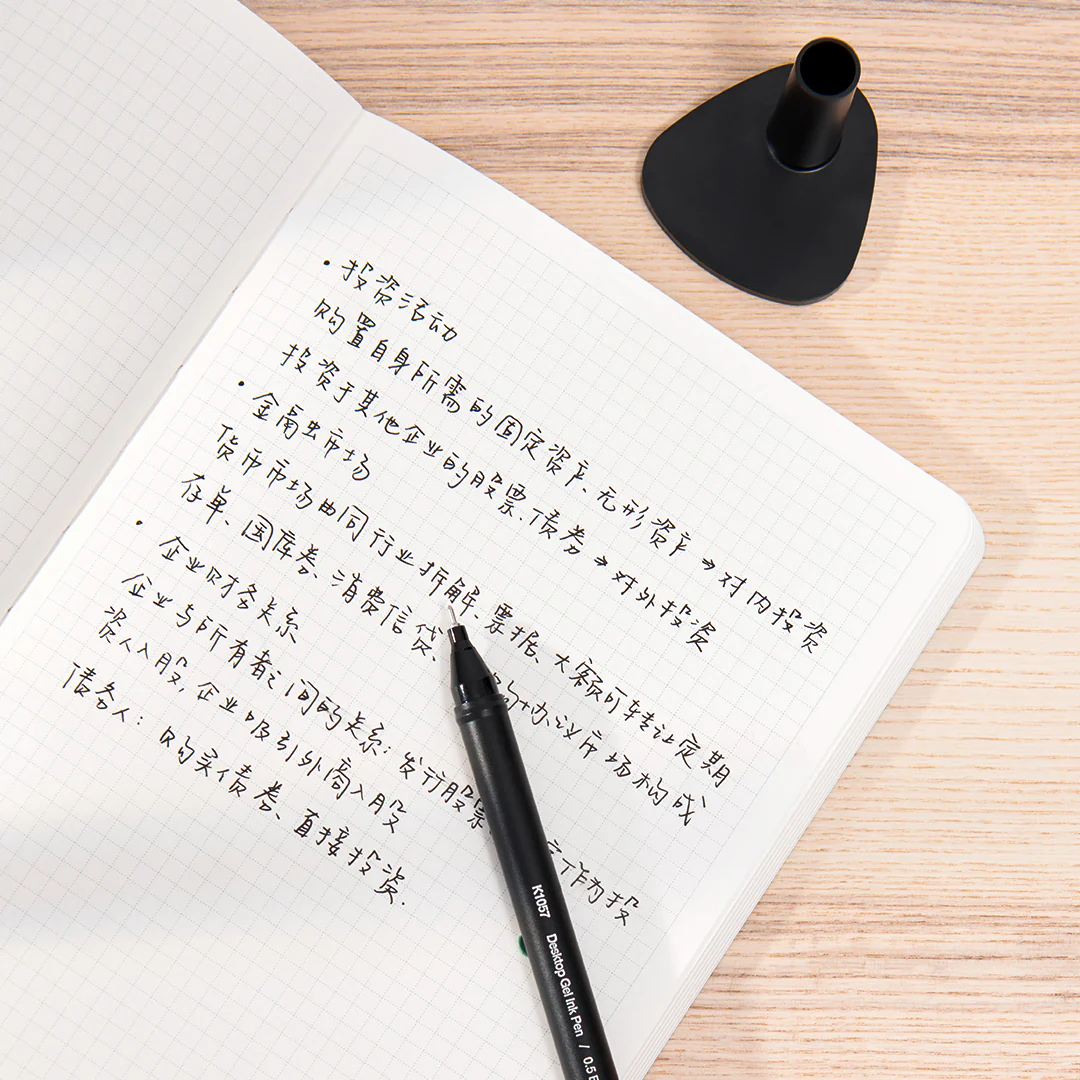 • 投资活动
购置自身所需的固定资产、无形资产→对内投资
投资于其他企业的股票、债券→对外投资
• 金融市场
货币市场由同行业拆解、票据、大额可转让定期
存单、国库券、消费信贷、 购协议市场构成
• 企业财务关系
企业与所有者之间的关系:发行股票 作为投
资人入股,企业吸引外商入股
债务人:购买债券、直接投资.
K1057 Desktop Gel Ink Pen / 0.5